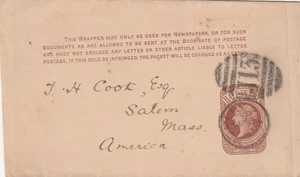 THIS WRAPPER MAY ONLY BE USED FOR NEWSPAPERS, OR FOR SUCH
DOCUMENTS AS ARE ALLOWED TO BE SENT AT THE BOOK-RATE OF POSTAGE
AND MUST NOT ENCLOSE ANY LETTER OR OTHER ARTICLE LIABLE TO LETTER
POSTAGE. IF THIS RULE BE INFRINGED, THE PACKET WILL BE CHARGED AS A LETTER.
J. H Cook, Esq
Salem
Mass.
America.